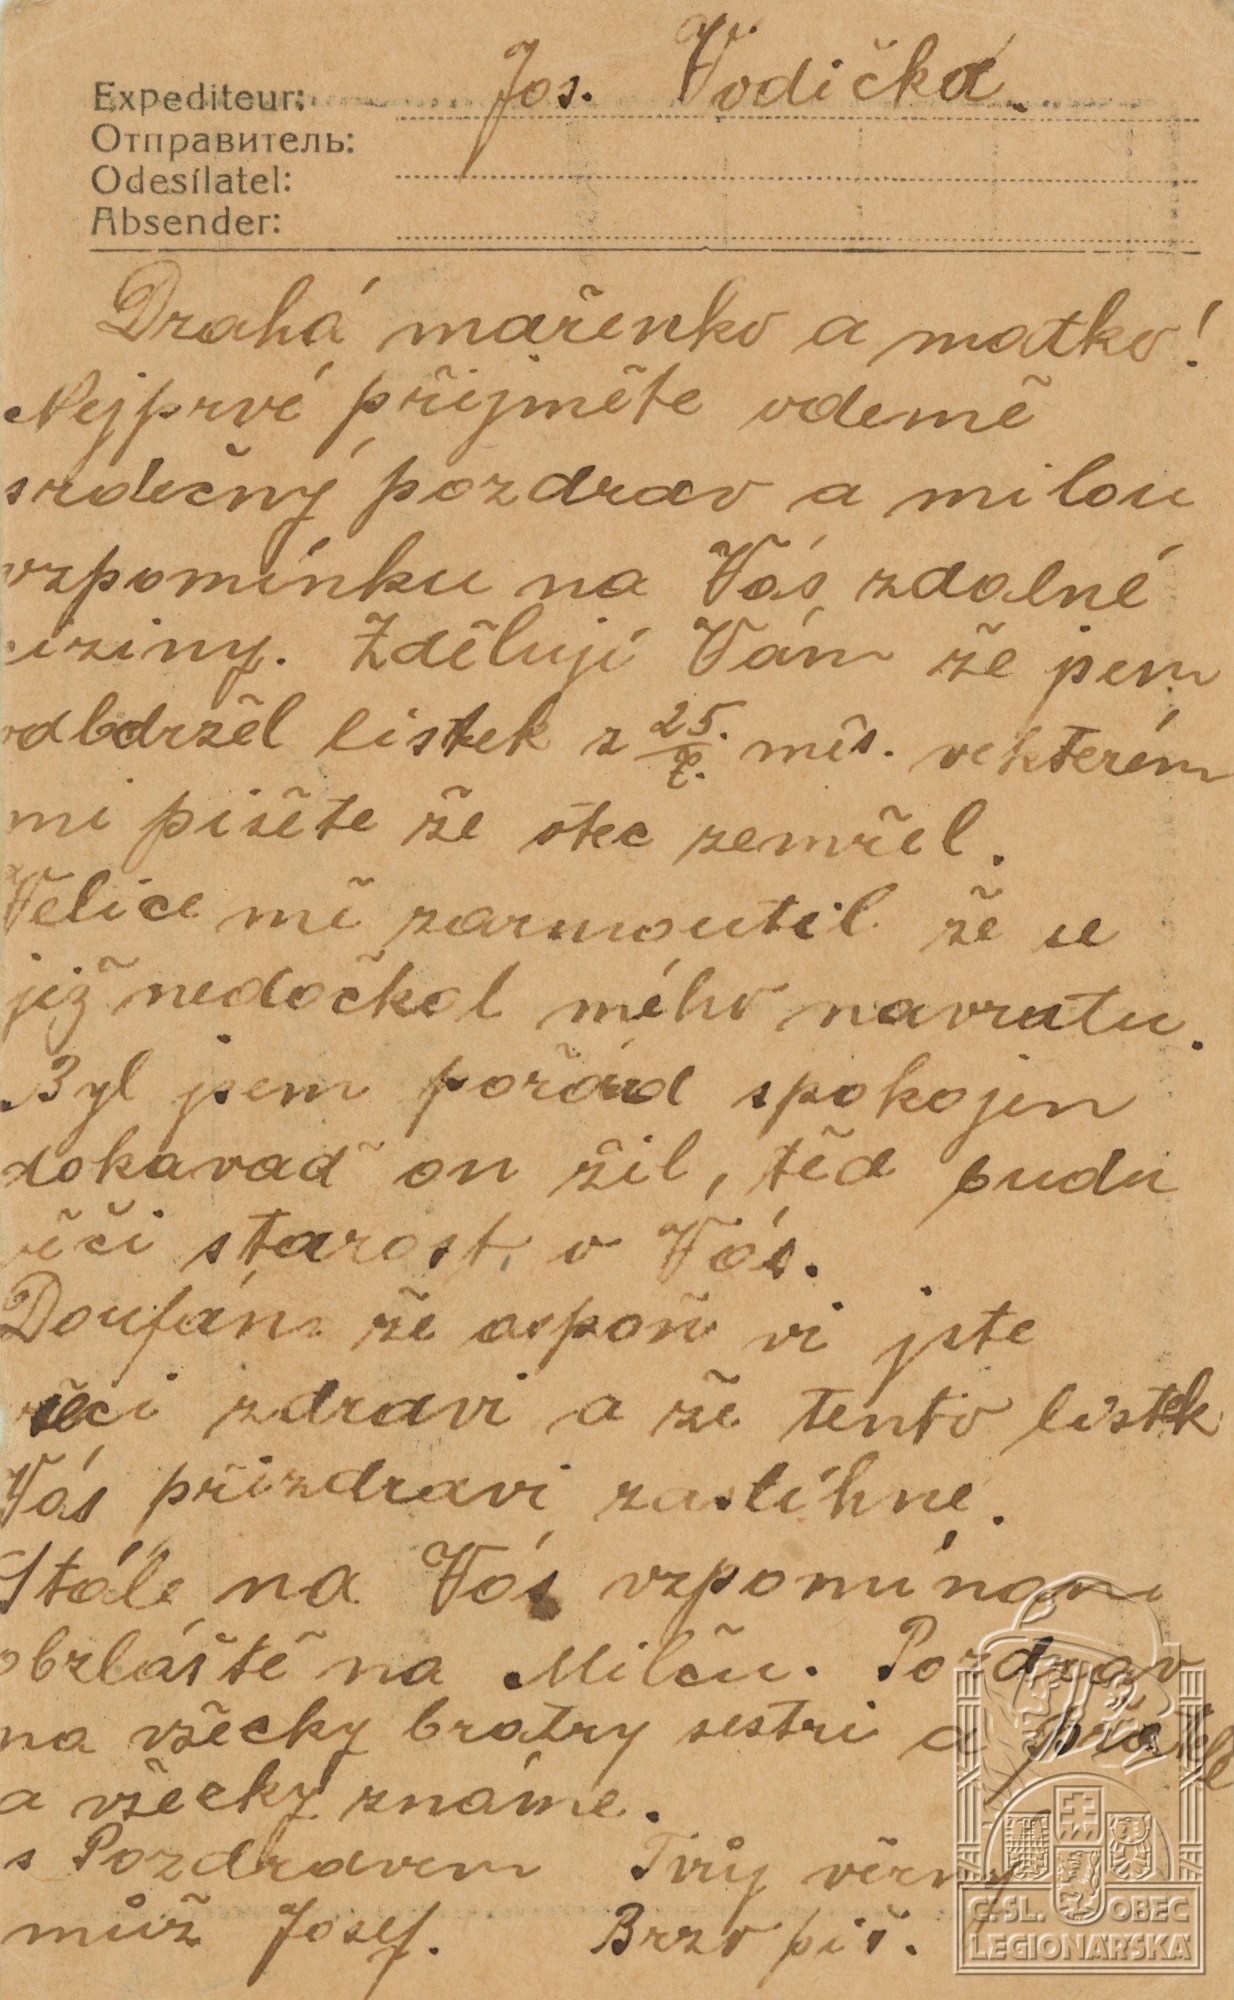 Expediteur: Jos. Vodička
Отправитель:
Odesílatel:
Absender:
Drahá mařenko a matko!
Nejprvé přijměte odemě
srdečný pozdrav a milou
vzpomínku na Vás zdalné
ciziny. Zdělují Vám že jsem
odbdržěl listek z 25./X. měs. vekterém
mi pišěte že otec zemřel.
Velice mě zarmoutil že se
již nedočkal mého navratu.
Byl jsem pořád spokojen
dokavaď on žil, těd budu
věči starost o Vás.
Doufám že aspoň vi jste
šeci zdravi a že tento listek
Vás přizdravi zastíhne.
Stále na Vás vzpomínám
obzláště na Milču. Pozdrav
na všecky bratry sestri a přátele
a všecky známe.
s Pozdravem Tvůj věrny
můž Josef. Brzo piš.
Č.SL. OBEC
LEGIONÁŘSKÁ